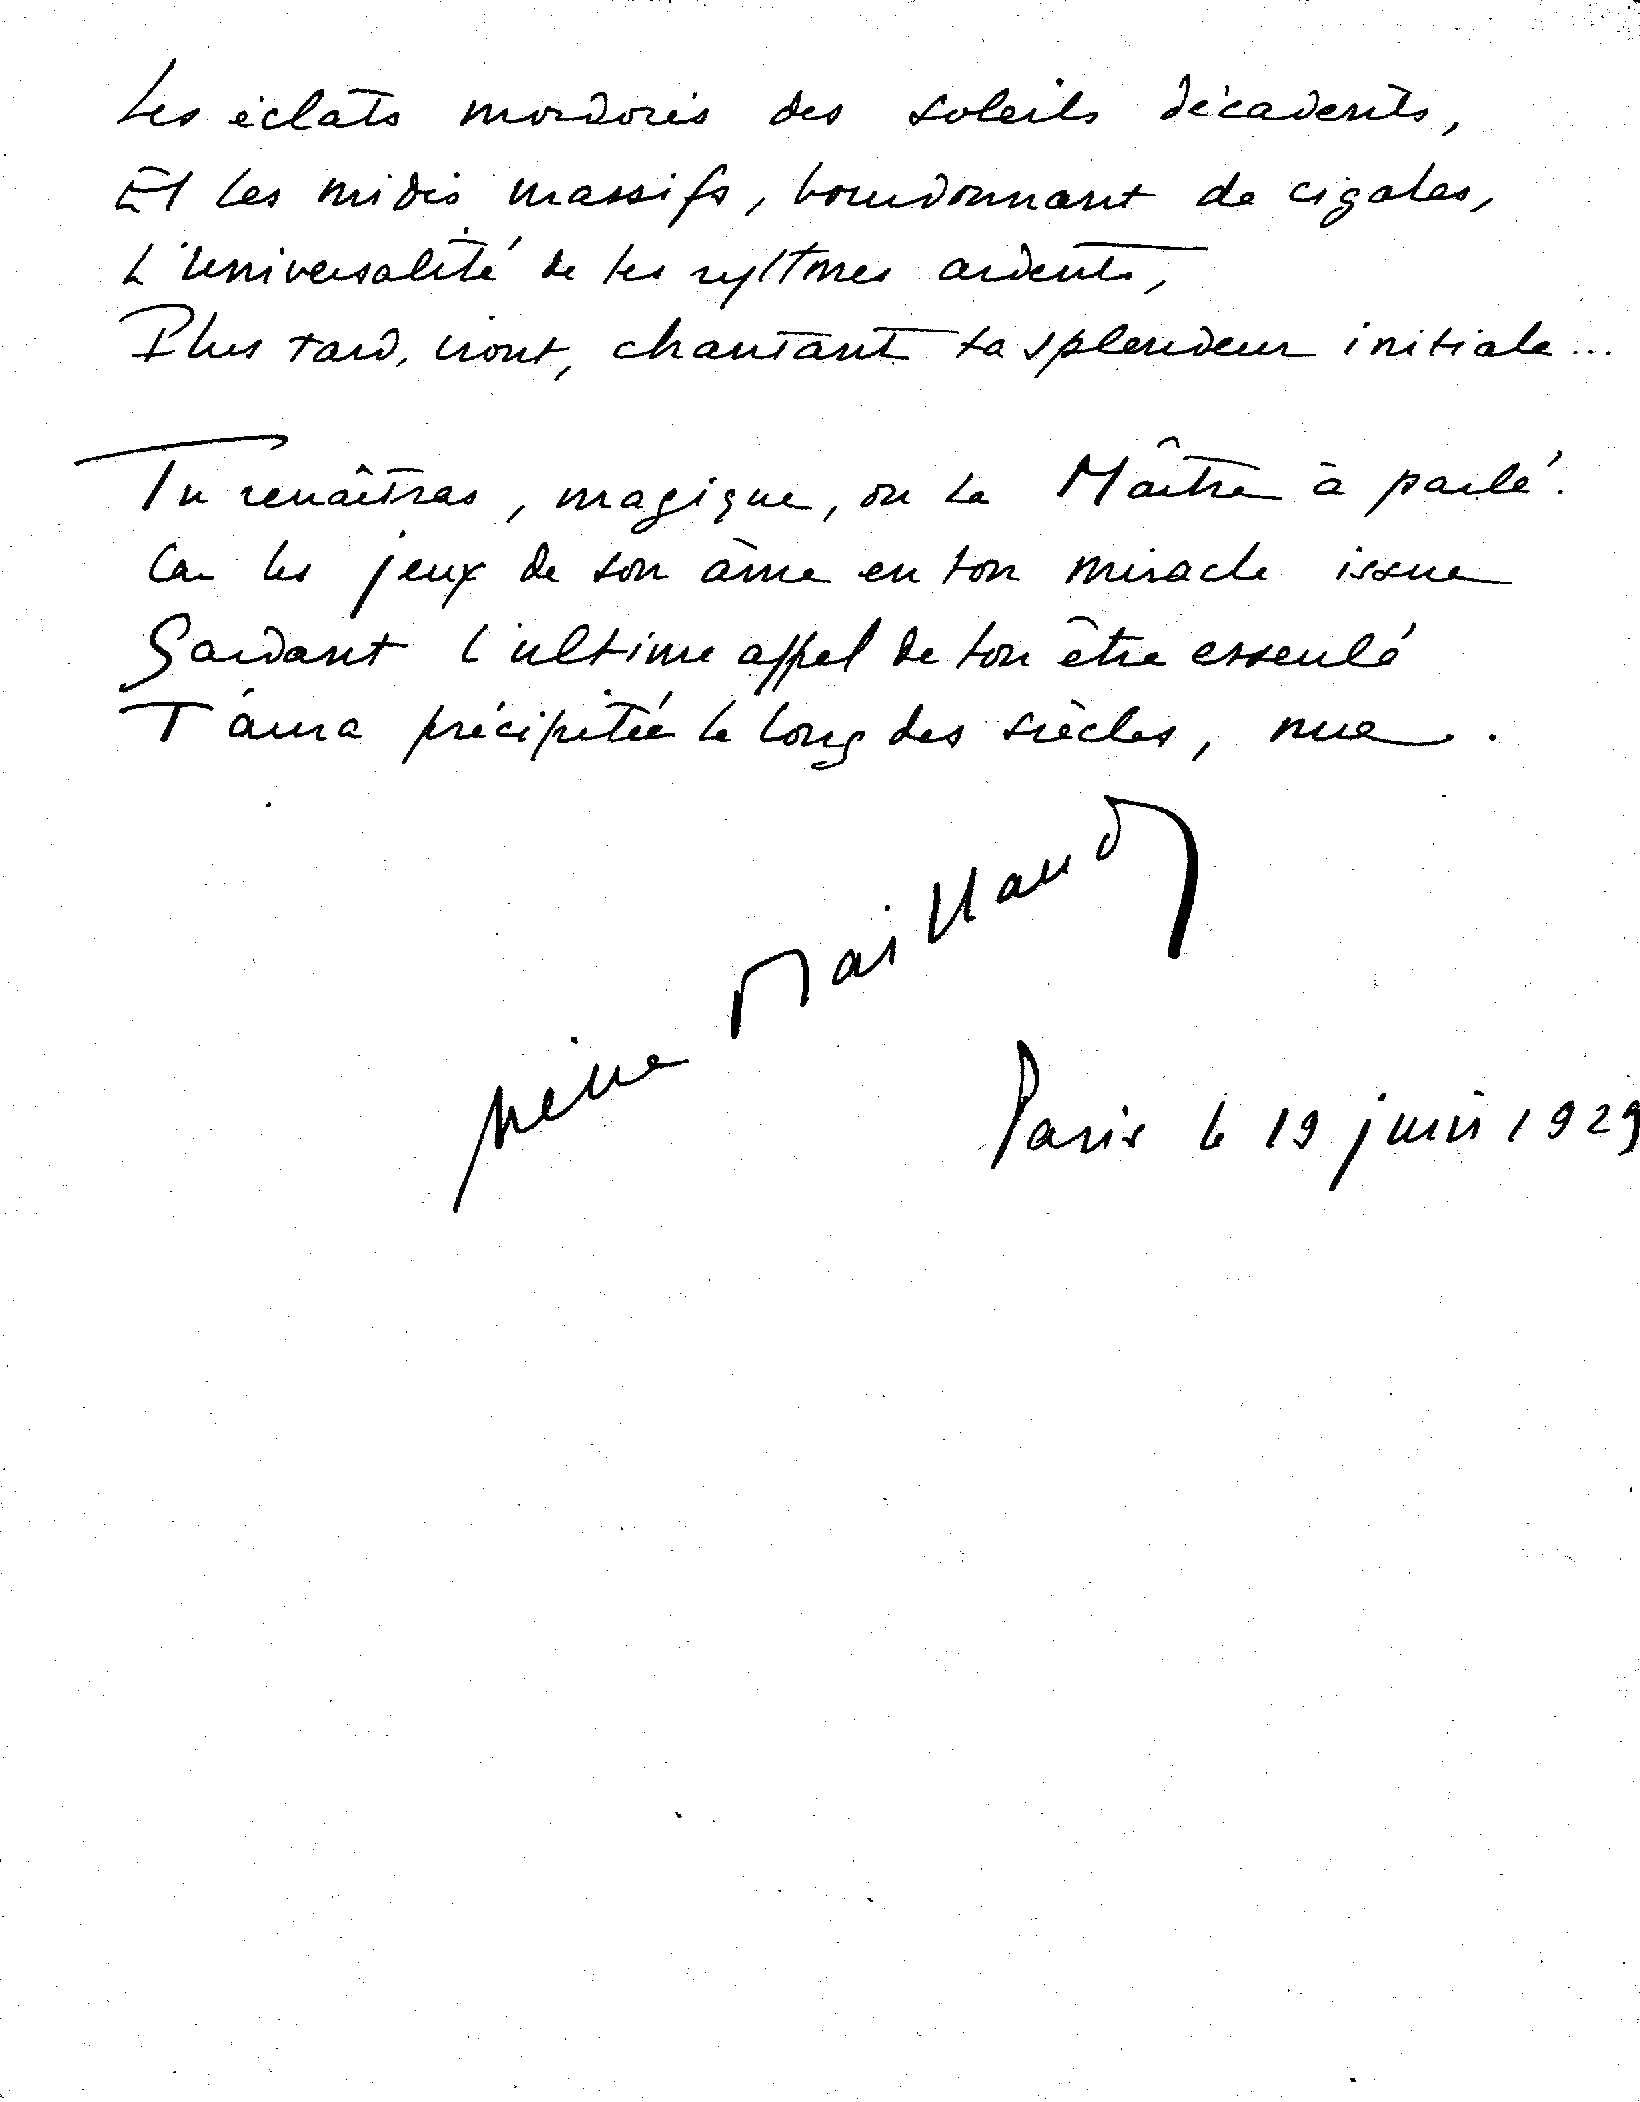 Les éclats mordorés des soleils décadents,
Et les midis massifs, bourdonnant de cigales,
L'universalité de tes rythmes ardents,
Plus tard, iront, chantant ta splendeur initiale...
Tu renaîtras, magique, ou le Maître à parlé.
Car les jeux de son âme en ton miracle issue
Gardant l'ultime appel de ton être esseulé
T'aura précipitée le long des siècles, nue.
Pierre Maillaud
Paris le 19 juin 1929